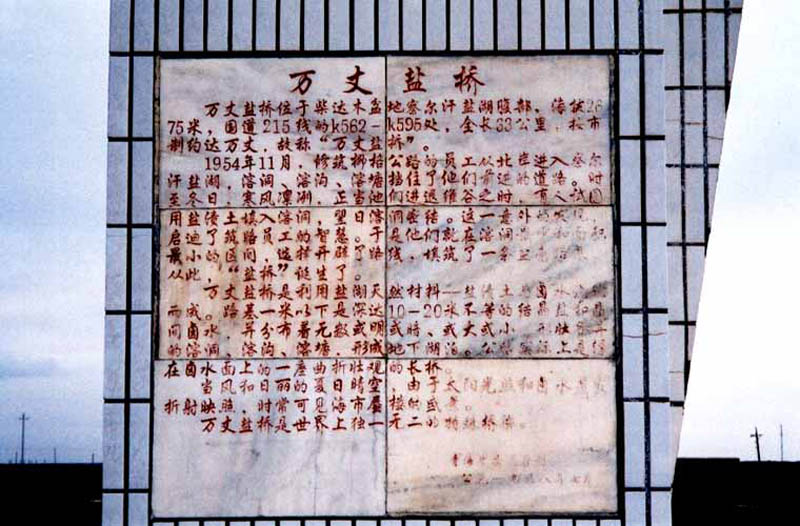 万丈盐桥
万丈盐桥位于柴达木盆地察尔汗盐湖腹部，海拔26
75米，国道215线的k562-k595处，全长33公里，按市
制约达万丈，故称“万丈盐桥”。
1954年11月，修筑柳格公路的员工从北岸进入察尔
汗盐湖，溶洞、溶沟、溶塘挡住了他们前进的道路。时
至冬日，寒风凛冽，正当他们进退维谷之时，有人试图
用盐渍土填入溶洞，翌日溶洞密结。这一意外的发现，
启迪了筑路员工的智慧。于是他们就在溶洞
最小的区间，选择开辟了路线，填筑了一条
从此，“盐桥”诞生了。
万丈盐桥是利用盐湖天然材料—盐渍土
而成。路基一米以下是深达10-20米不等的结晶盐和晶
间卤水，并分布着无数或明或暗、或大或小、形状各异
的溶洞、溶沟、溶塘，形成地下湖泊。公路实际上是
在卤水面上的一座曲折壮观的长桥。
当风和日丽的夏日晴空，由于太阳光盐和卤水
折射映照，时常可见海市蜃楼的盛景。
万丈盐桥是世界上独一无二的特殊桥梁。
年七月